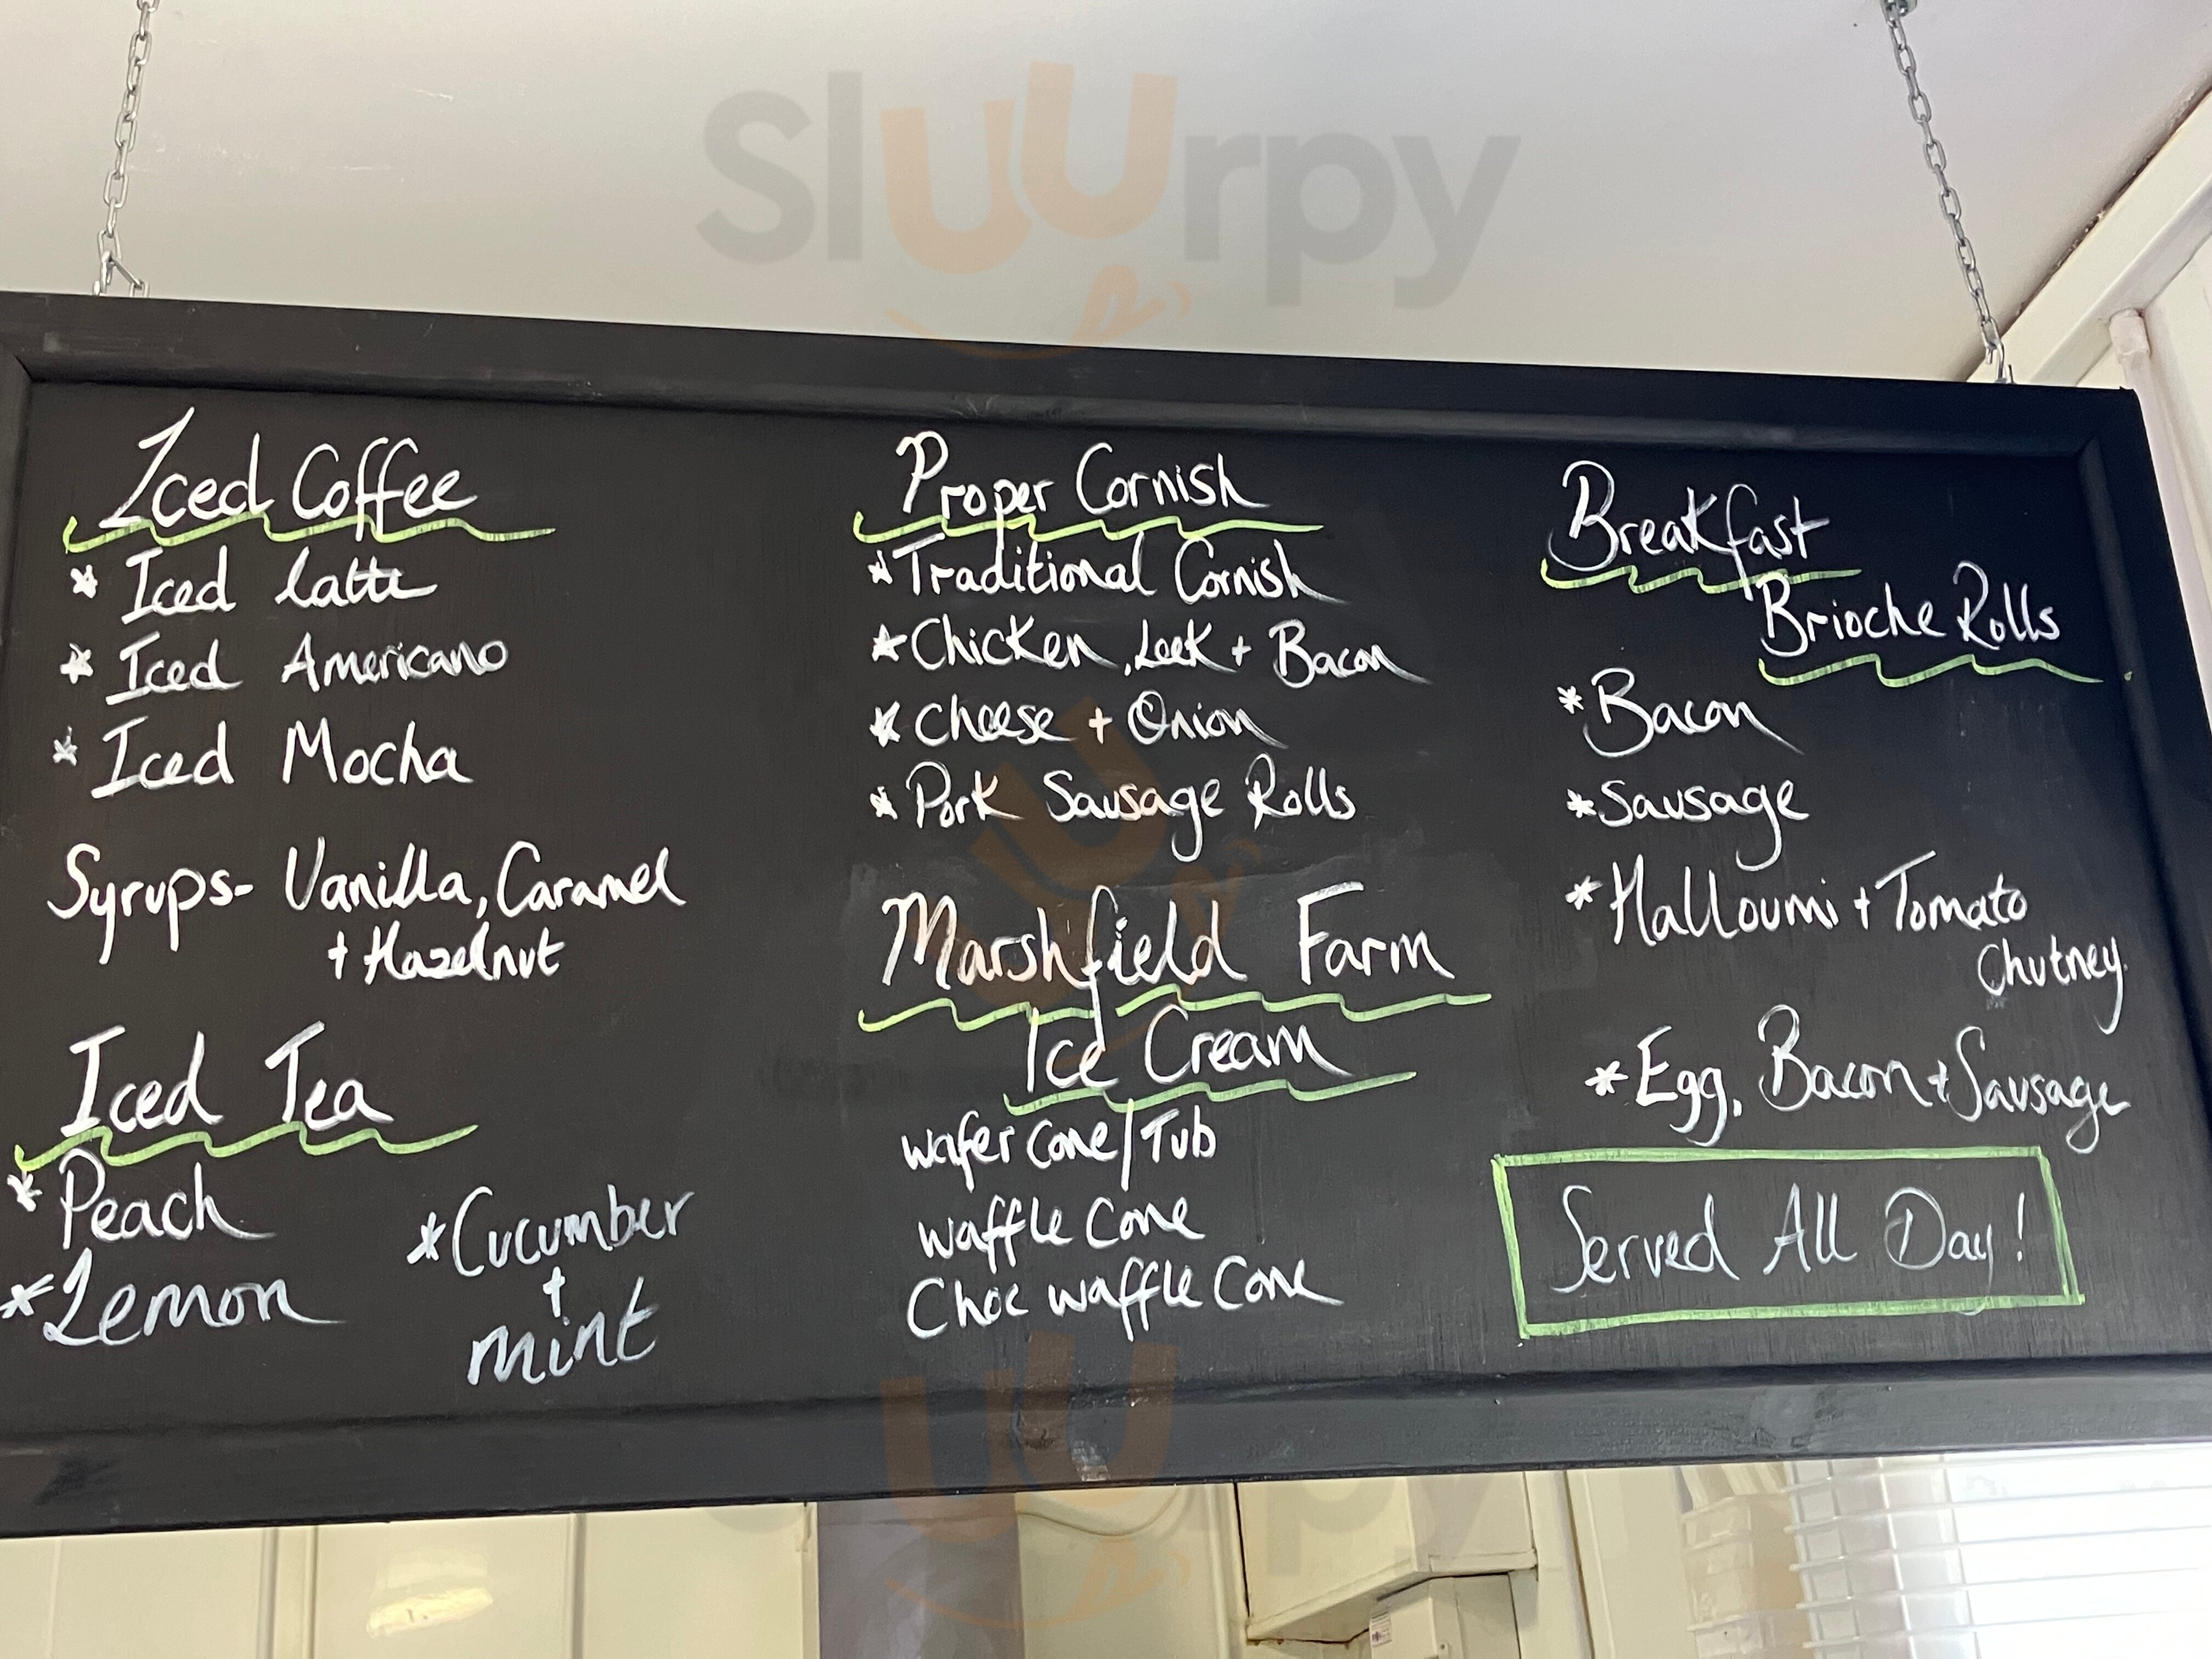 Sluurpy
Iced Coffee
* Iced latte
* Iced Americano
* Iced Mocha
Syrups- Vanilla, Caramel
+ Hazelnut
Iced Tea
* Peach
* Lemon
* Cucumber
+
mint
Proper Cornish
* Traditional Cornish
* Chicken, Leek + Bacon
* Cheese + Onion
* Pork Sausage Rolls
Marshfield Farm
Ice Cream
wafer cone/Tub
waffle Cone
Choc waffle Cone
Breakfast
Brioche Rolls
* Bacon
* Sausage
* Halloumi + Tomato
Chutney.
* Egg, Bacon + Sausage
Served All Day!
Sluurpy